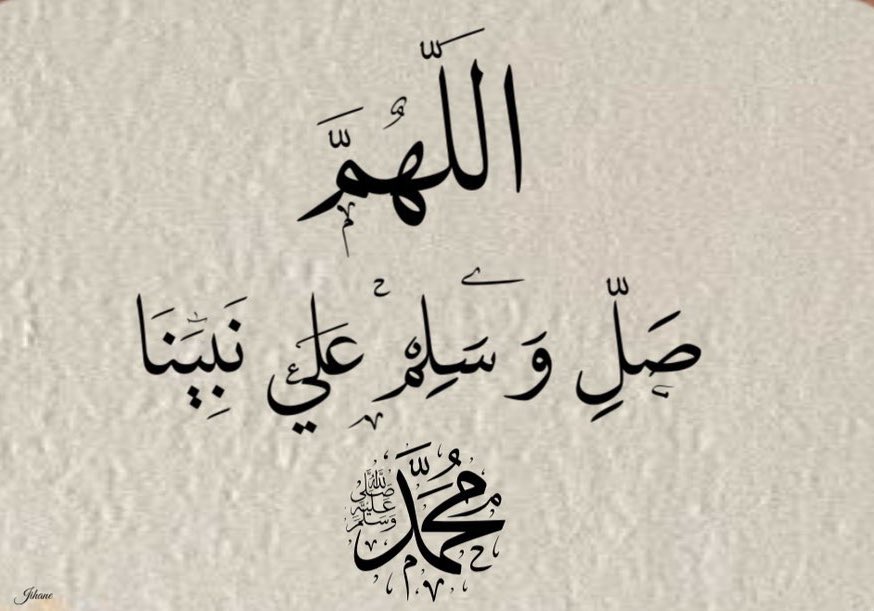 اللَّهُمَّ
صَلِّ وَ سَلِمْ عَلَي نَبِيَنَا
مُحَمَّد صلى الله عليه وسلم
Jihane